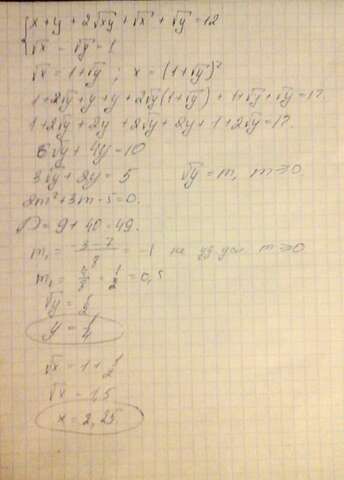 {x + y + 2√xy + √x + √y = 12
√x - √y = 1
√x = 1 + √y ; x = (1 + √y)²
1 + 2√y + y + y + 2√y(1 + √y) + 1 + √y + √y = 12
1 + 2√y + 2y + 2√y + 2y + 1 + 2√y = 12
6√y + 4y = 10
3√y + 2y = 5 √y = m, m ≥ 0
2m² + 3m - 5 = 0.
D = 9 + 40 = 49.
m₁ = (-3 - 7) / = -1 не уд. усл. m ≥ 0
m₂ = 4/8 = 1/2 = 0,5
√y = 1/2
y = 1/4
√x = 1 + 1/2
√x = 1,5
x = 2,25